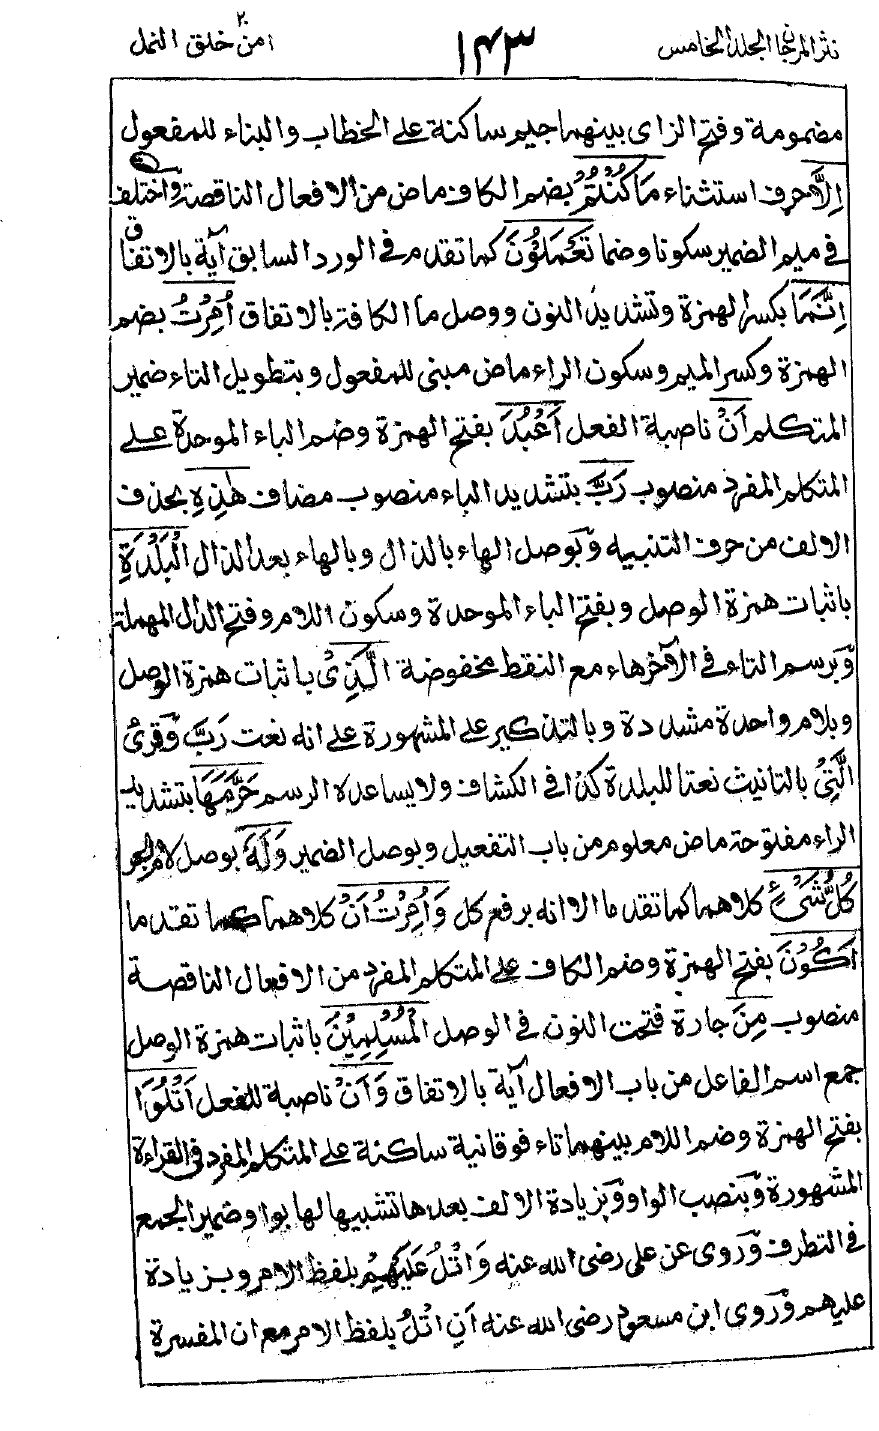 نثر المرجان المجلد الخامس
١٤٣
امن خلق ٢٠ النمل
مضمومة وفتح الزاى بينهما جيم ساكنة على الخطاب والبناء للمفعول
اِلَّا حرف استثناء مَا كُنْتُمْ بضم الكاف ماض من الافعال الناقصة واختلف
فى ميم الضمير سكونا وضما تَعْمَلُوْنَ كما تقدم فى الورد السابق آية بالاتفاق
اِنَّمَا بكسر الهمزة وتشديد النون ووصل ما الكافة بالاتفاق اُمِرْتُ بضم
الهمزة وكسر الميم وسكون الراء ماض مبنى للمفعول وبتطويل التاء ضمير
المتكلم اَنْ ناصبة الفعل اَعْبُدَ بفتح الهمزة وضم الباء الموحدة على
المتكلم المفرد منصوب رَبَّ بتشديد الباء منصوب مضاف هٰذِهِ بحذف
الالف من حرف التنبيه وبوصل الهاء بالذال وبالهاء بعد الذال الْبَلْدَةِ
باثبات همزة الوصل وبفتح الباء الموحدة وسكون اللام وفتح الدال المهملة
وبرسم التاء فى الآخرهاء مع النقط مخفوضة الَّذِىْ باثبات همزة الوصل
وبلام واحدة مشددة وبالتذكير على المشهورة على انه نعت رَبَّ وقرئ
الَّتِىْ بالتانيث نعتا للبلدة كذا فى الكشاف ولا يساعده الرسم حَرَّمَهَا بتشديد
الراء مفتوحة ماض معلوم من باب التفعيل وبوصل الضمير وَلَهٗ بوصل لام الجر
كُلُّ شَىْءٍ كلاهما كما تقدما الا انه برفع كل وَاُمِرْتُ اَنْ كلاهما كما تقدما
اَكُوْنَ بفتح الهمزة وضم الكاف على المتكلم المفرد من الافعال الناقصة
منصوب مِنَ جارة فتحت النون فى الوصل الْمُسْلِمِيْنَ باثبات همزة الوصل
جمع اسم الفاعل من باب الافعال آية بالاتفاق وَاَنْ ناصبة للفعل اَتْلُوَا
بفتح الهمزة وضم اللام بينهما تاء فوقانية ساكنة على المتكلم المفرد فى القراءة
المشهورة وبنصب الواو وبزيادة الالف بعدها تشبيها لها بواو ضمير الجمع
فى التطرف وروى عن على رضى الله عنه وَاتْلُ عَلَيْهِمْ بلفظ الامر وبزيادة
عليهم وروى ابن مسعود رضى الله عنه اَنِ اتْلُ بلفظ الامر مع ان المفسرة